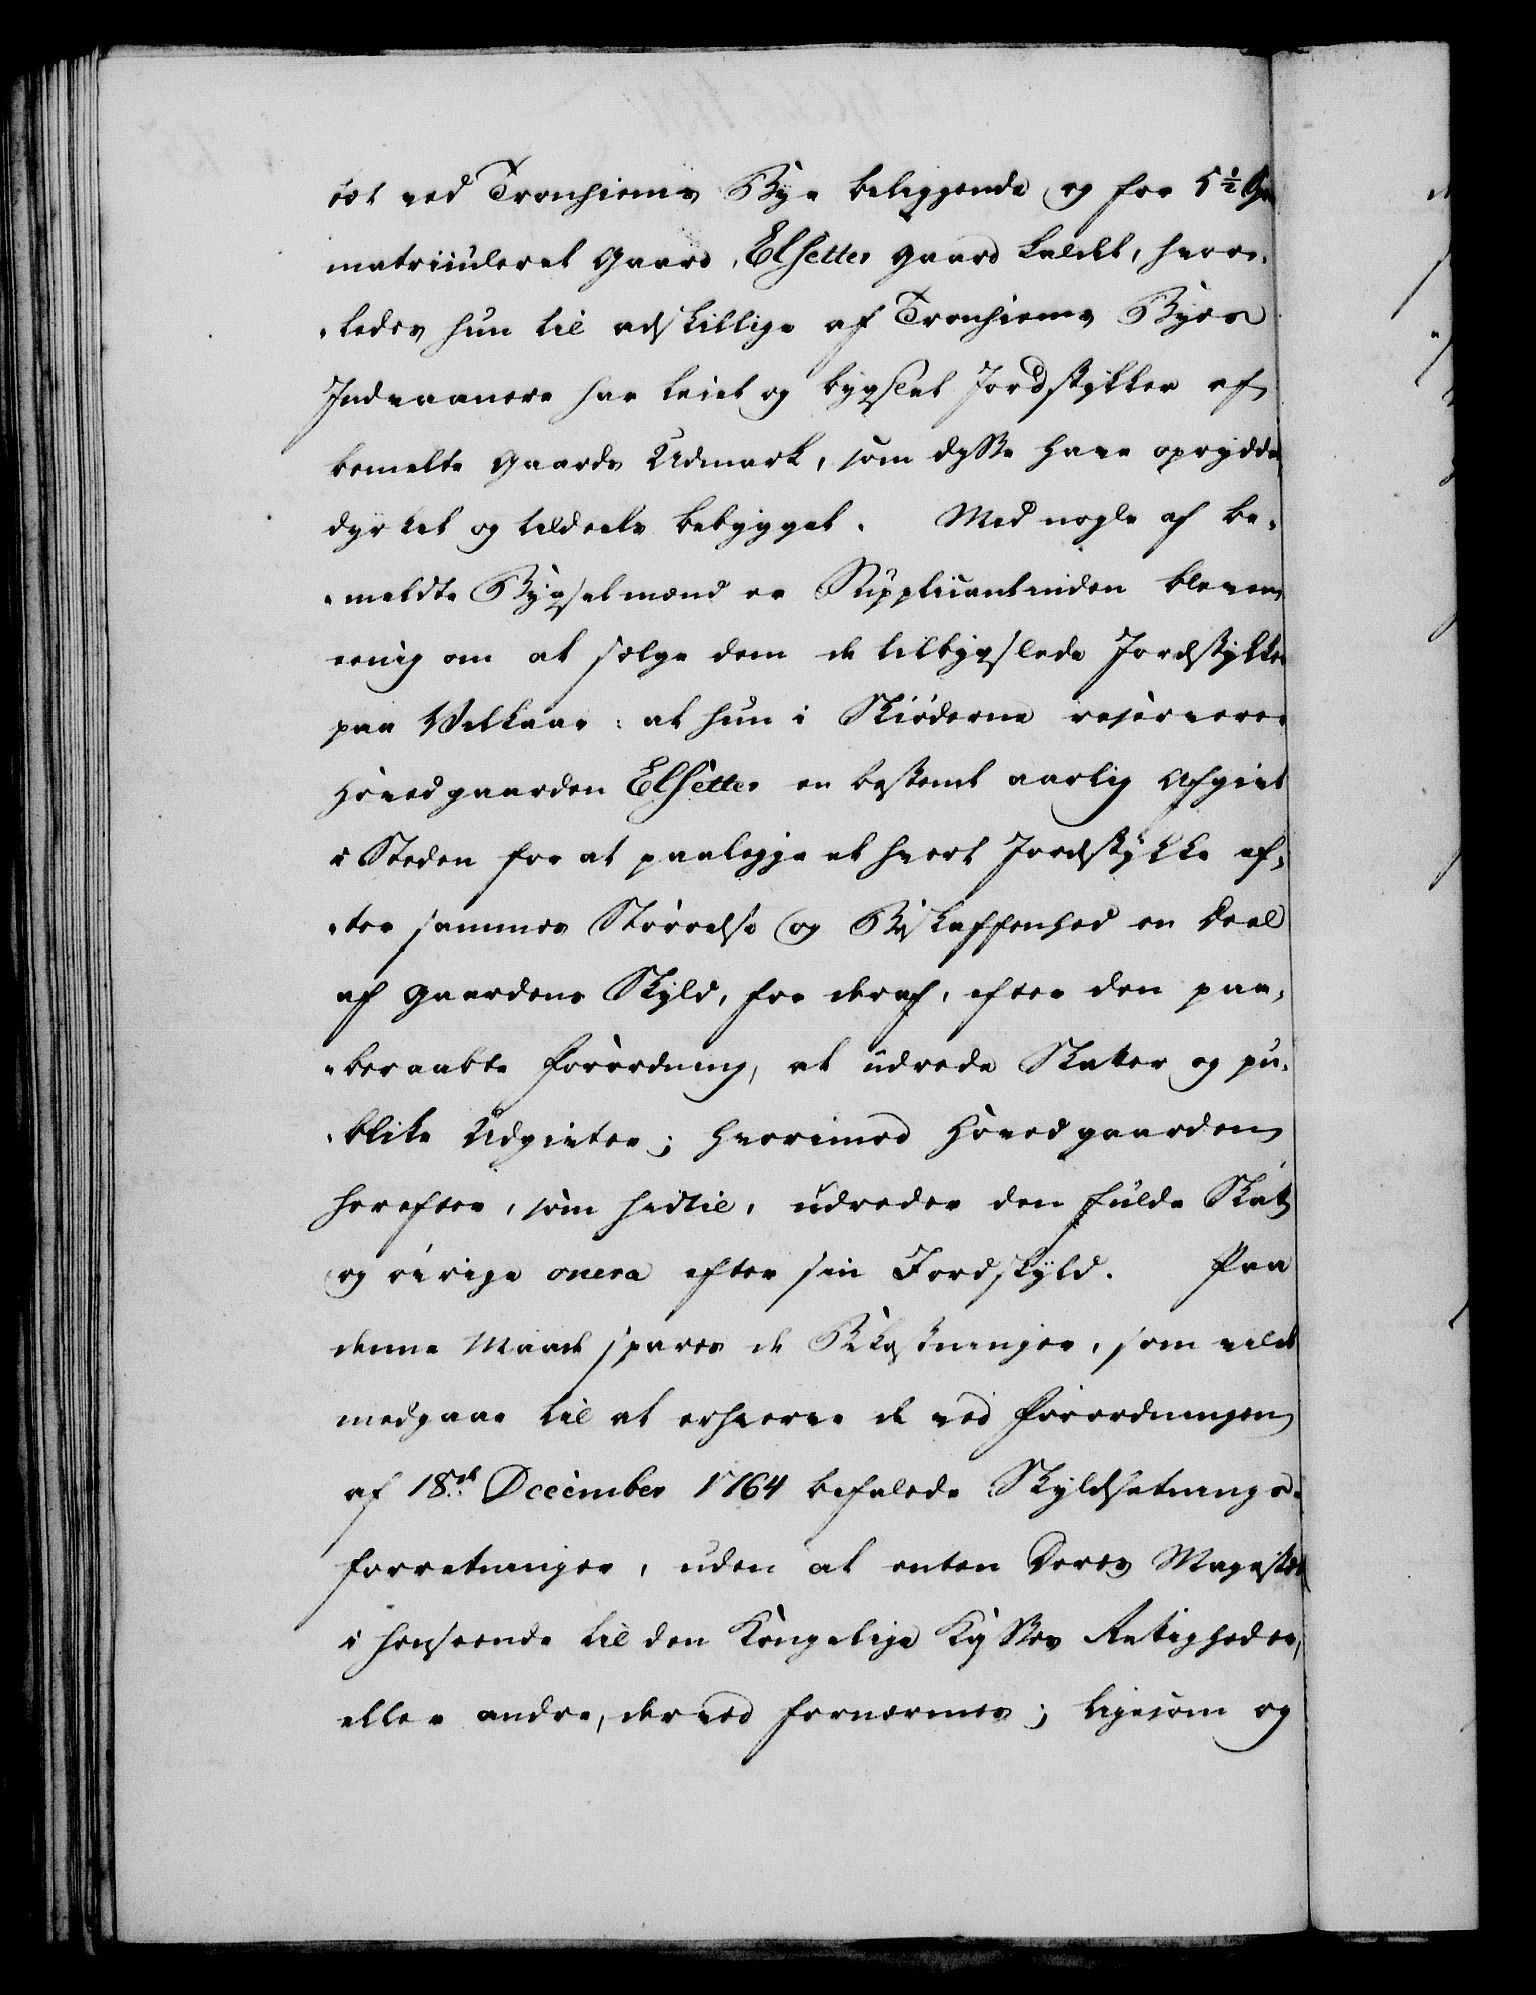 tæt ved Tronhiems Bye beliggende og for 5½ Øre
matriculeret Gaard, Elsetter gaard kaldet, hvor-
-ledes hun til adskillige af Tronhiems Byes
Indvaanere har leiet og bygslet Jordstykker af
bemelte Gaards Udmark, som disse have opryddet,
dyrket og tildeels bebygget. Med nogle af be-
-meldte Bygselmænd er Supplicantinden bleven
eenig om at sælge dem de tilbygslede Jordstykker
paa Vilkaar: at hun i Skiøderne reserverer
Hovedgaarden Elsetter en bestemt aarlig Afgivt
i Steden for at paalegge et hvert Jordstykke ef-
-ter sammes Størrelse og Beskaffenhed en Deel
af Gaardens Skyld, for deraf, efter den paa-
-beraabte Forordning, at udrede Skatter og pu-
-blike Udgivter; hvorimod Hovedgaarden
herefter, som hidtil, udreder den fulde Skat
og øvrige onera efter sin Jordskyld. Paa
denne Maade spares de Bekostninger, som vilde
medgaae til at erhverve de ved Forordningen
af 18de December 1764 befalede Skyldsetnings-
forretninger, uden at enten Deres Majestæt
i Henseende til den Kongelige Kasses Rettigheder,
eller andre, derved fornærmes; ligesom og